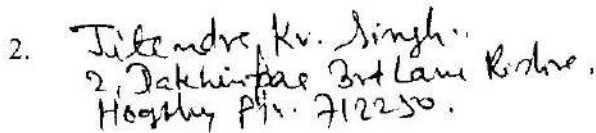 2. Jitendra Kr. Singh.
2, Dakhinpae 3rd Lane Rishra.
Hooghly Pin. 712250.